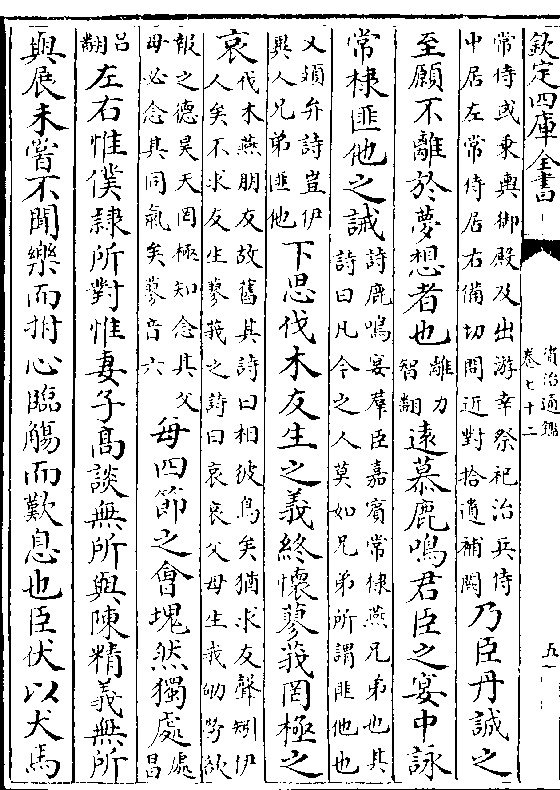 欽定四庫全書
資治通鑑
卷七十二
五
常侍或乘輿御殿及出游幸祭祀治兵侍
中居左常侍居右備切問近對拾遺補闕
乃臣丹誠之
至願不離於夢想者也
離力
智翻
遠慕鹿鳴君臣之宴中詠
常棣匪他之誡
詩鹿鳴宴羣臣嘉賓常棣燕兄弟也其
詩曰凡今之人莫如兄弟所謂匪他也
又頍弁詩豈伊
異人兄弟匪他
下思伐木友生之義終懷蓼莪罔極之
哀
伐木燕朋友故舊其詩曰相彼鳥矣猶求友聲矧伊
人矣不求友生蓼莪之詩曰哀哀父母生我劬勞欲
報之德昊天罔極知念其父
母必念其同氣矣蓼音六
每四節之會塊然獨處
處
昌
呂
翻
左右惟僕隸所對惟妻子高談無所與陳精義無所
與展未嘗不聞樂而拊心臨觴而歎息也臣伏以犬馬